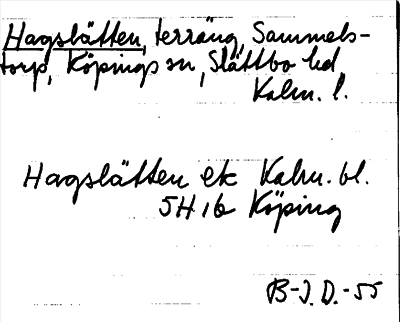 Hagslätten, terräng, Sammels-
torp, Köpings sn, Slättbo hd
Kalm. l.
Hagslätten ek Kalm. bl.
5H 1b Köping
B-J. D. -55